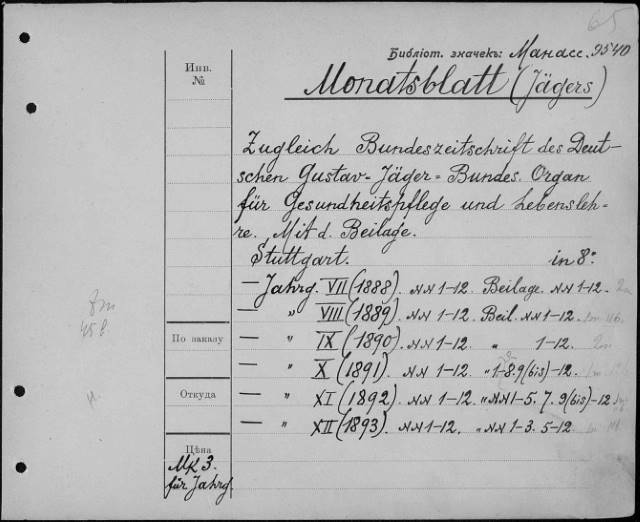 65
Библіот. значекъ: Манасс. 9540
Инв.
№
Monatsblatt (Jägers)
Zugleich Bundeszeitschrift des Deut-
schen Gustav-Jäger-Bundes. Organ
für Gesundheitspflege und Lebensleh-
re. Mit d. Beilage.
Stuttgart. in 8:
— Jahrg. VII (1888). NN 1-12. Beilage. NN 1-12.
— „ VIII (1889). NN 1-12. Beil. NN 1-12.
По заказу
— „ IX (1890). NN 1-12. „ 1-12.
— „ X (1891). NN 1-12. „ 1-8. 9 (bis)-12.
Откуда
— „ XI (1892). NN 1-12. „ NN 1-5. 7. 9 (bis)-12
— „ XII (1893). NN 1-12. „ NN 1-3. 5-12.
Цѣна
Mk 3.
für Jahrg.